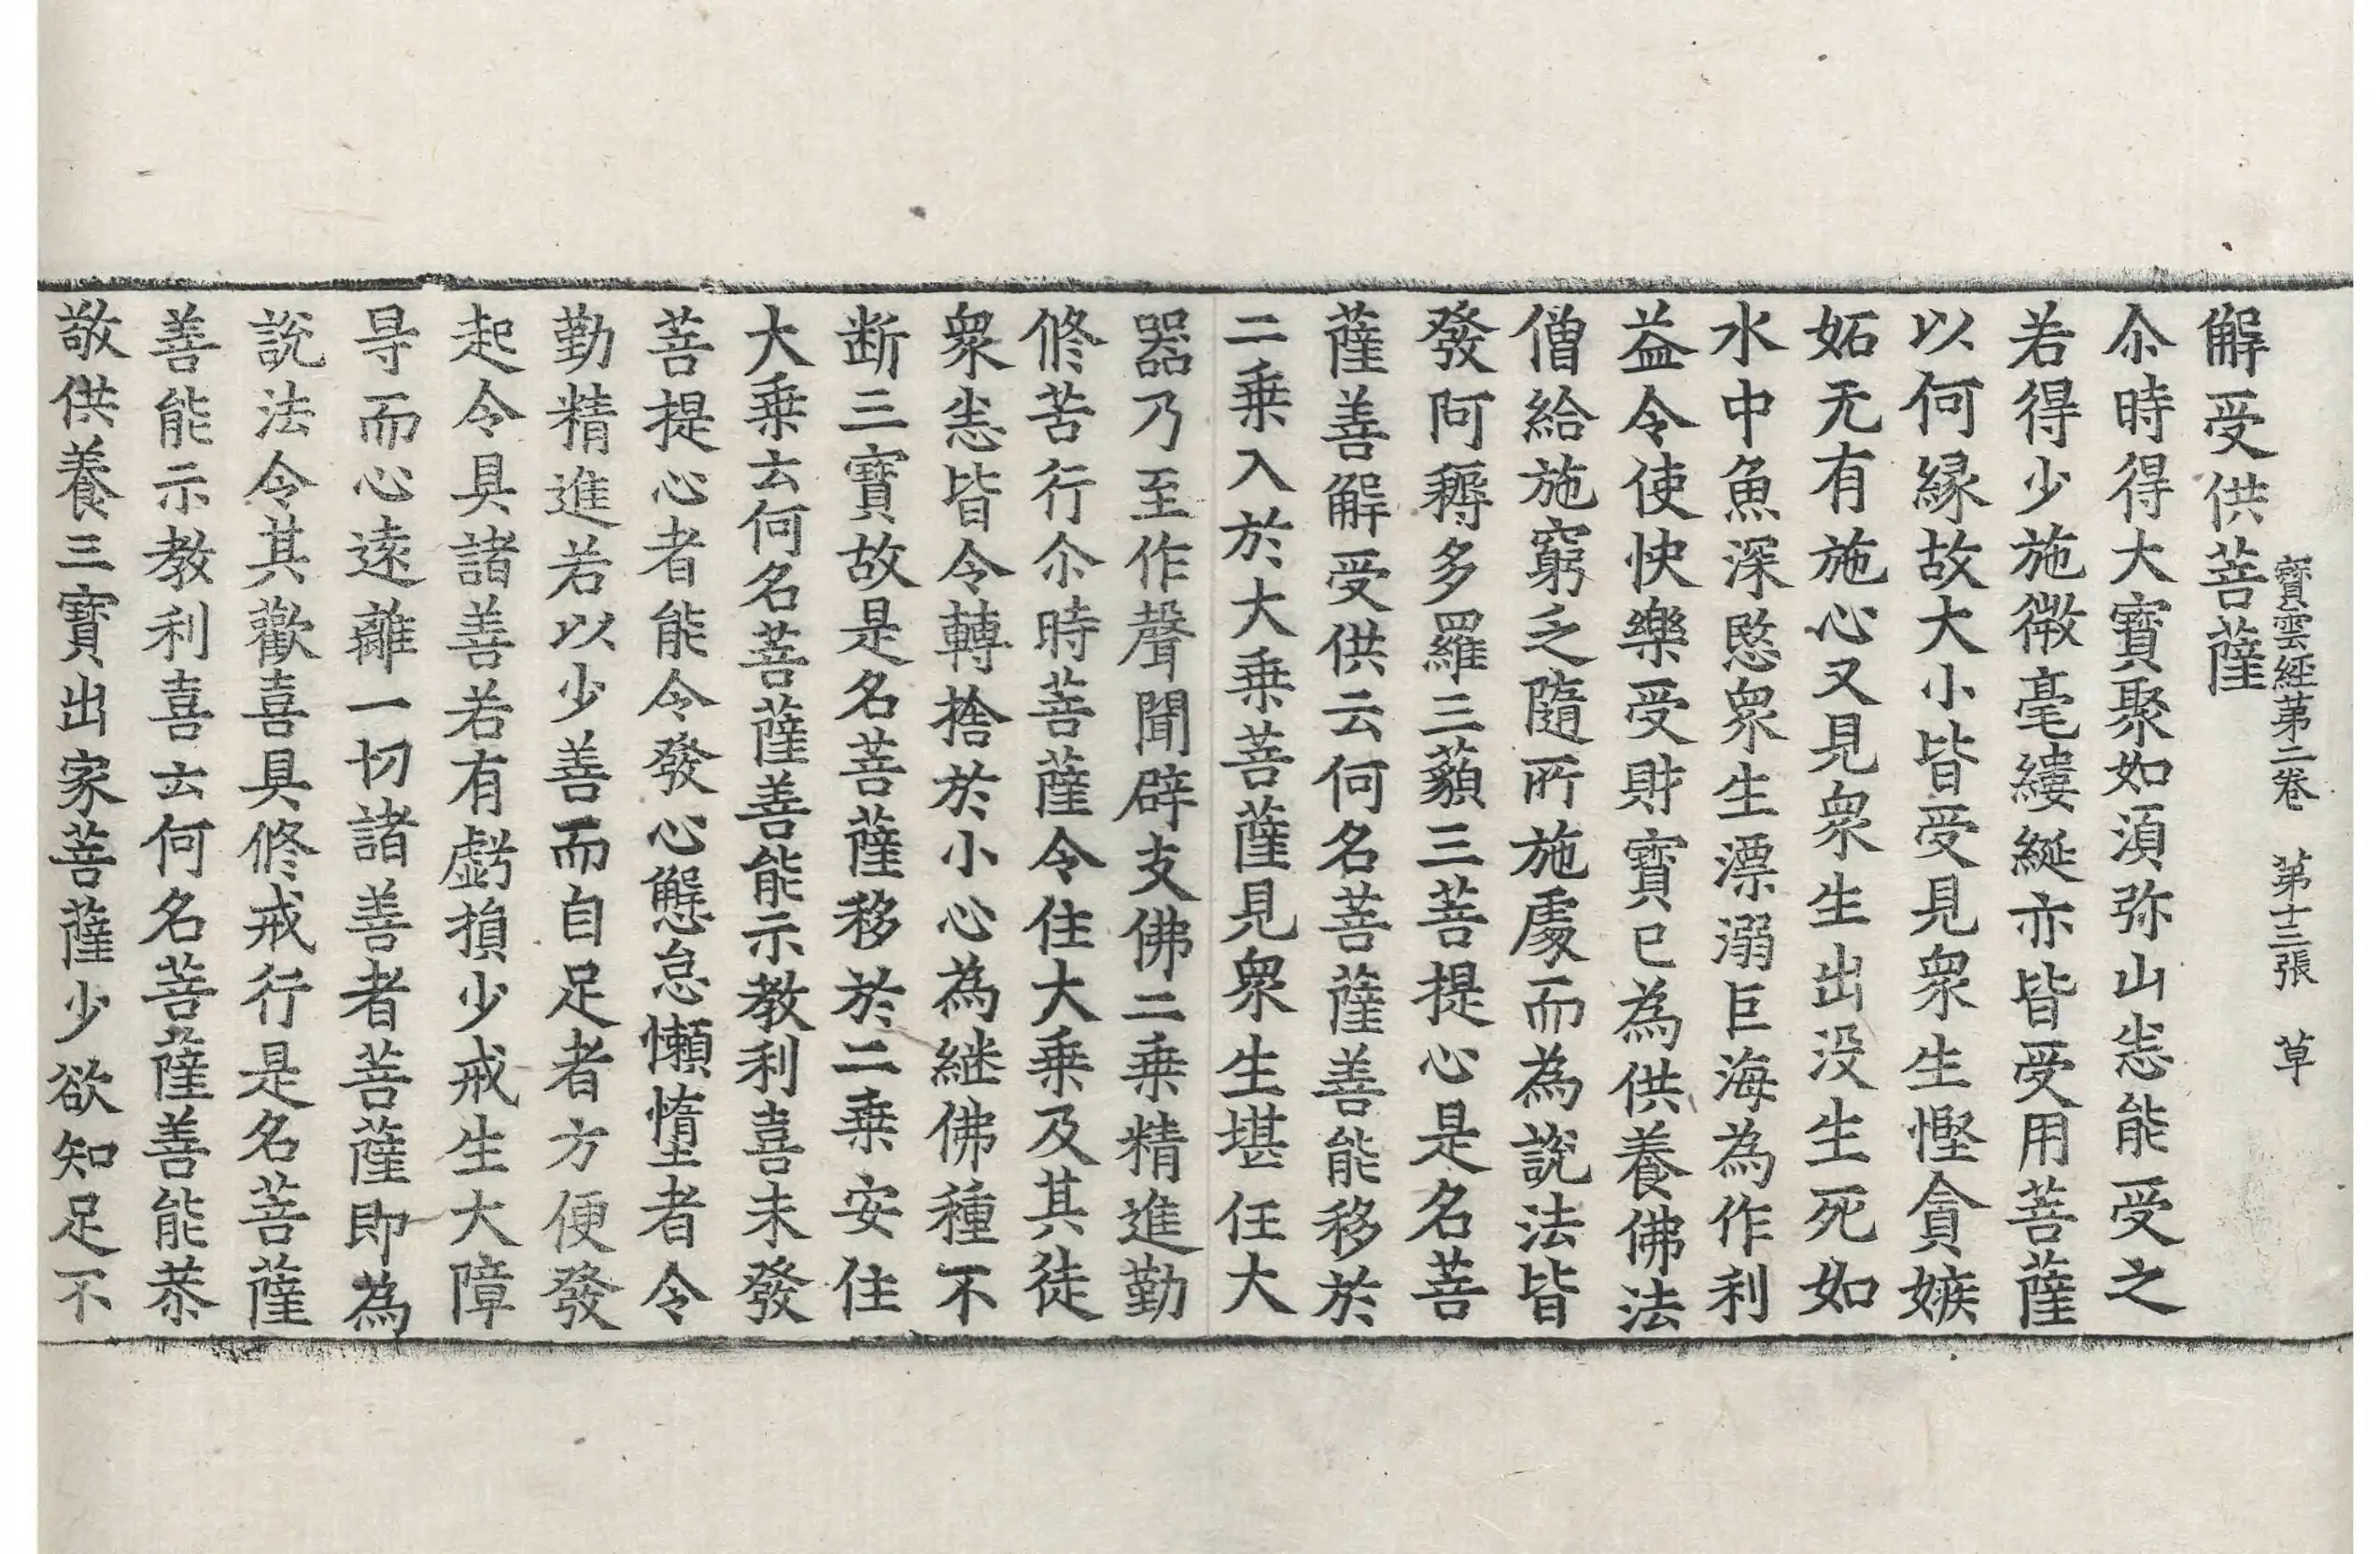 寶雲經第二卷　第十三張　草
解受供菩薩
尒時得大寶聚如湏弥山悉能受之
若得少施微毫縷綖亦皆受用菩薩
以何縁故大小皆受見衆生慳貪嫉
妬无有施心又見衆生出没生死如
水中魚深愍衆生漂溺巨海為作利
益令使快樂受財寶已為供養佛法
僧給施窮乏隨所施處而為說法皆
發阿耨多羅三藐三菩提心是名菩
薩善解受供云何名菩薩善能移於
二乗入於大乗菩薩見衆生堪任大
器乃至作聲聞辟支佛二乗精進勤
修苦行尒時菩薩令住大乗及其徒
衆悉皆令轉捨於小心為継佛種不
断三寶故是名菩薩移於二乗安住
大乗云何名菩薩善能示教利喜未發
菩提心者能令發心懈怠懶惰者令
勤精進若以少善而自足者方便發
起令具諸善若有虧損少戒生大障
㝵而心遠離一切諸善者菩薩即為
說法令其歡喜具修戒行是名菩薩
善能示教利喜云何名菩薩善能恭
敬供養三寶出家菩薩少欲知足不